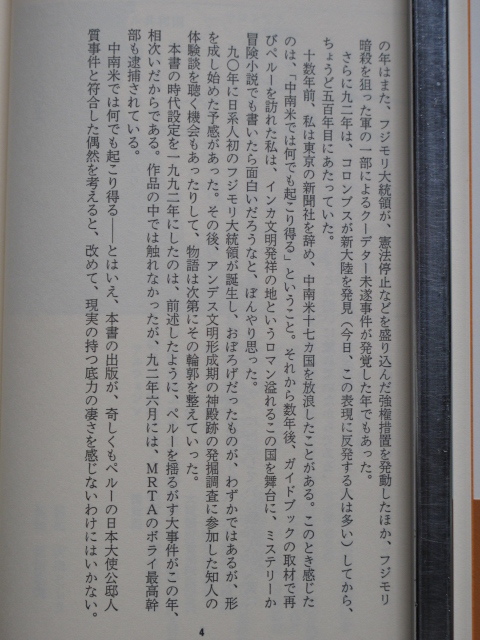 の年はまた、フジモリ大統領が、憲法停止などを盛り込んだ強権措置を発動したほか、フジモリ
暗殺を狙った軍の一部によるクーデター未遂事件が発覚した年でもあった。
さらに九二年は、コロンブスが新大陸を発見（今日、この表現に反発する人は多い）してから、
ちょうど五百年目にあたっていた。
十数年前、私は東京の新聞社を辞め、中南米十七カ国を放浪したことがある。このとき感じた
のは、「中南米では何でも起こり得る」ということ。それから数年後、ガイドブックの取材で再
びペルーを訪れた私は、インカ文明発祥の地というロマン溢れるこの国を舞台に、ミステリーか
冒険小説でも書いたら面白いだろうなと、ぼんやり思った。
九〇年に日系人初のフジモリ大統領が誕生し、おぼろげだったものが、わずかではあるが、形
を成し始めた予感があった。その後、アンデス文明形成期の神殿跡の発掘調査に参加した知人の
体験談を聴く機会もあったりして、物語は次第にその輪郭を整えていった。
本書の時代設定を一九九二年にしたのは、前述したように、ペルーを揺るがす大事件がこの年、
相次いだからである。作品の中では触れなかったが、九二年六月には、MRTAのポライ最高幹
部も逮捕されている。
中南米では何でも起こり得る――とはいえ、本書の出版が、奇しくもペルーの日本大使公邸人
質事件と符合した偶然を考えると、改めて、現実の持つ底力の凄さを感じないわけにはいかない。
4